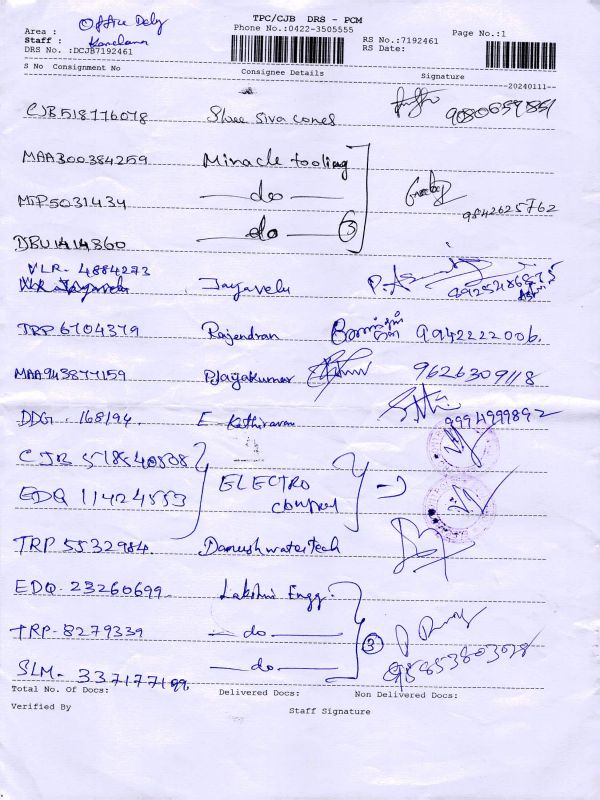 TPC/CJB DRS - PCM
Area : Office Dely
Phone No.:0422-3505555
Staff :
RS No.:7192461
Page No.:1
DRS No. :DCJB7192461
RS Date:
S No Consignment No Consignee Details Signature
--20240111--
CJB518776078 Shree Siva cones
MAA300384259 Miracle tooling
MTP5031434 — do — 9842625762
DBU1414860 — do — 3
VLR- 4884273
Jayavelu
TRP 6704379 Rajendran 9942222006.
MAA943877159 P Jayakumar 9626309118
DDG. 168194. E Kathiravan 9994999892
CJB 518540508
ELECTRO
EDQ 11424553 control
TRP 5532984. Daneshwatertech
EDQ. 23260699. Lakshmi Engg.
TRP-8279339 — do — 3
SLM- 337177199 — do —
Total No. Of Docs: Delivered Docs: Non Delivered Docs:
Verified By Staff Signature